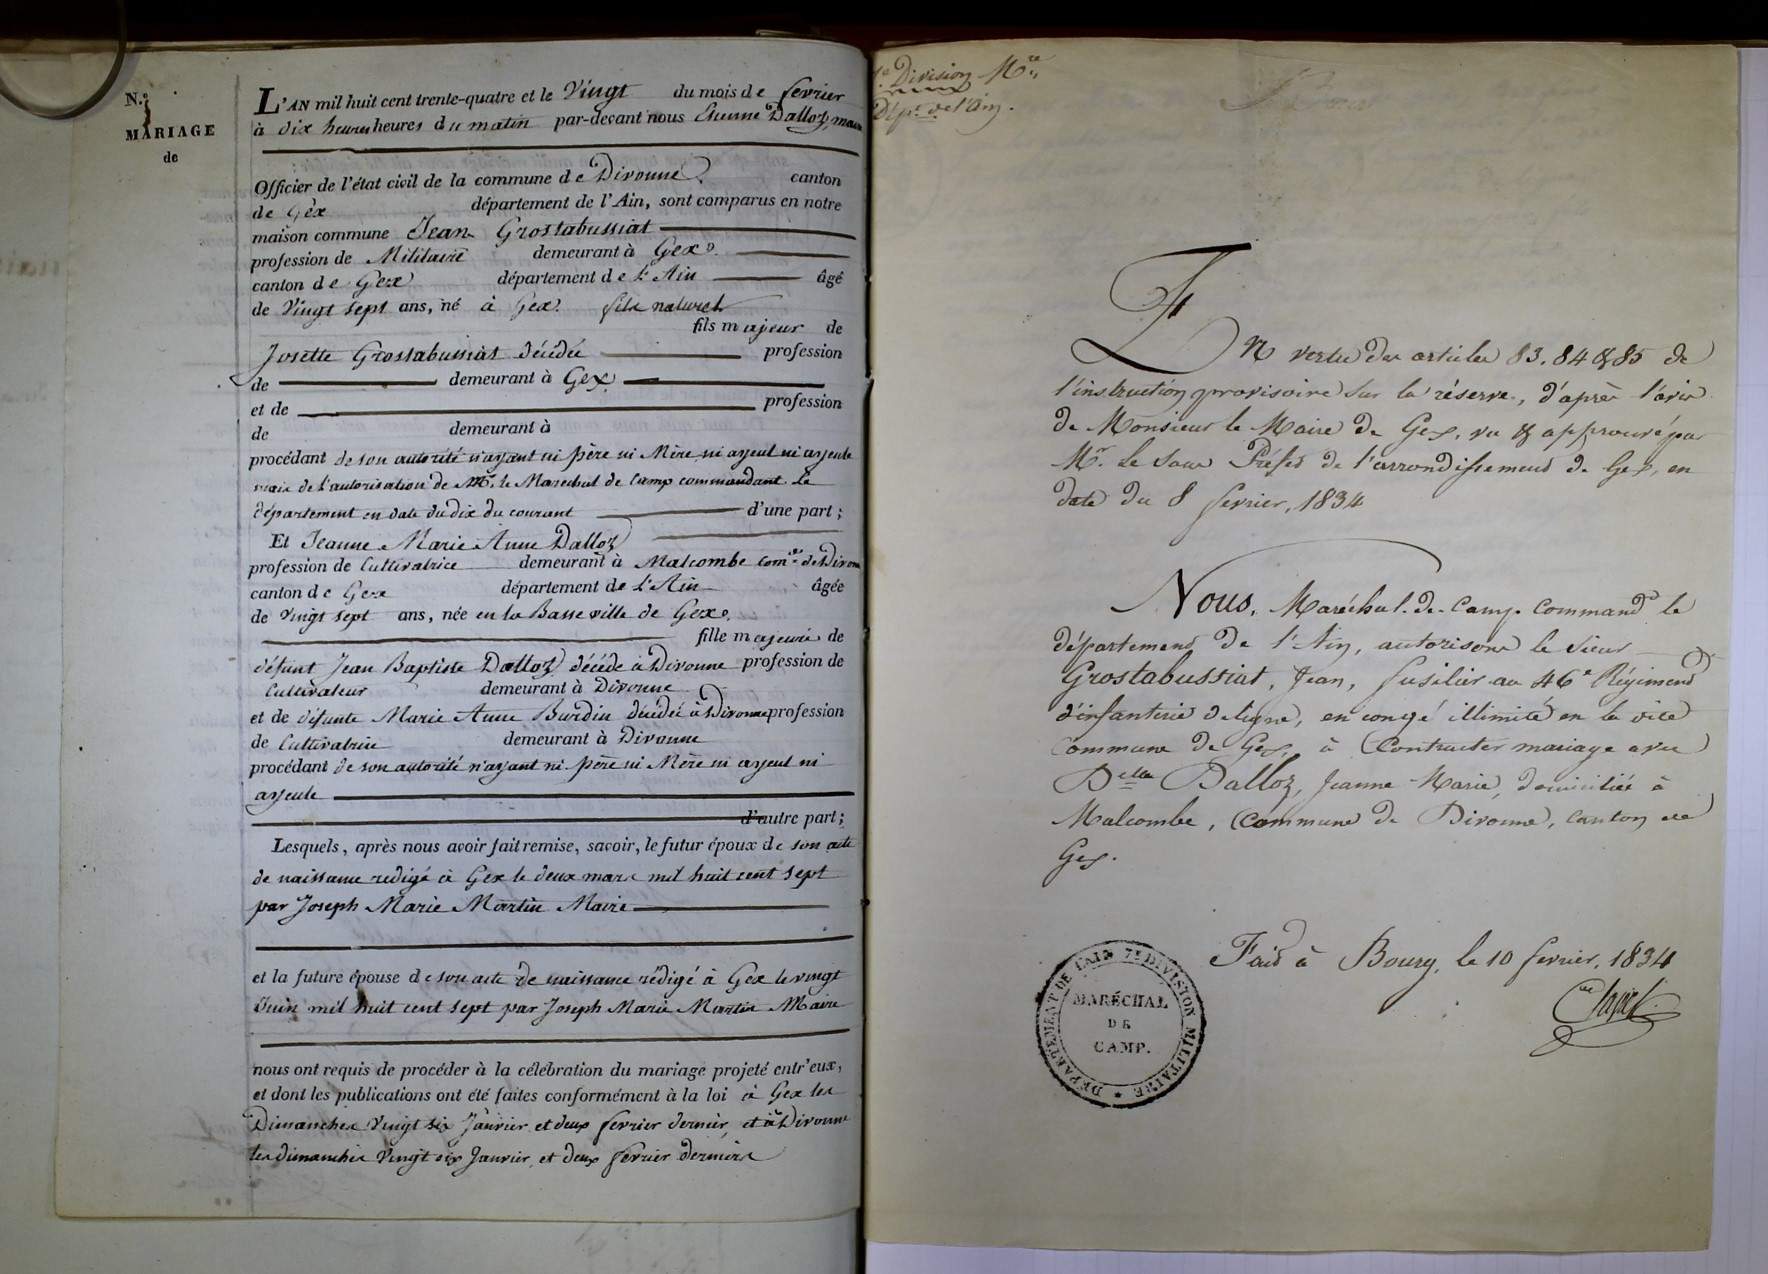 N.º
MARIAGE
de
L'AN mil huit cent trente-quatre et le Vingt du mois de fevrier
à dix heures heures du matin par-devant nous Etienne Dalloz, maire
Officier de l'état civil de la commune de Divonne canton
de Gex département de l'Ain, sont comparus en notre
maison commune Jean Grostabussiat
profession de Militaire demeurant à Gex
canton de Gex département de L'Ain âgé
de Vingt sept ans, né à Gex fils naturel
fils majeur de
Josette Grostabussiat décédée profession
de demeurant à Gex
et de profession
de demeurant à
procédant de son autorité n'ayant ni père ni Mère ni ayeul ni ayeule
mais de l'autorisation de Mr. le Maréchal de Camp commandant le
département en date du dix du courant d'une part;
Et Jeanne Marie Anne Dalloz
profession de Cultivatrice demeurant à Malcombe comne de Divonne
canton de Gex département de L'Ain âgée
de vingt sept ans, née en la Basse ville de Gex
fille majeure de
défunt Jean Baptiste Dalloz décédé à Divonne profession de
Cultivateur demeurant à Divonne
et de défunte Marie Anne Burdin décédée à Divonne profession
de Cultivatrice demeurant à Divonne
procédant de son autorité n'ayant ni père ni Mère ni ayeul ni
ayeule
d'autre part;
Lesquels, après nous avoir fait remise, savoir, le futur époux de son acte
de naissance redigé à Gex le deux mars mil huit cent sept
par Joseph Marie Martin Maire
et la future épouse de son acte de naissance rédigé à Gex le vingt
Juin mil huit cent sept par Joseph Marie Martin Maire
nous ont requis de procéder à la célébration du mariage projeté entr'eux,
et dont les publications ont été faites conformément à la loi à Gex les
Dimanches Vingt six Janvier et deux fevrier dernier, et à Divonne
les dimanches Vingt six Janvier et deux fevrier derniers
Division Mre
Dépt. de l'Ain.
En vertu des articles 83. 84 & 85 de
l'instruction provisoire sur la réserve, d'après l'avis
de Monsieur le Maire de Gex, vu & approuvé par
Mr. Le Sous Préfet de l'arrondissement de Gex, en
date du 8 fevrier, 1834
Nous, Maréchal-de-Camp commandt le
département de l'Ain, autorisons le sieur
Grostabussiat, Jean, fusilier au 46e Régiment
d'infanterie de ligne, en congé illimité en la dite
Commune de Gex, à Contracter mariage avec
Delle Dalloz, Jeanne-Marie, domiciliée à
Malcombe, Commune de Divonne, Canton de
Gex.
Fait à Bourg, le 10 fevrier, 1834
DÉPARTEMENT DE L'AIN 7E DIVISION MILITAIRE
MARÉCHAL
DE
CAMP.